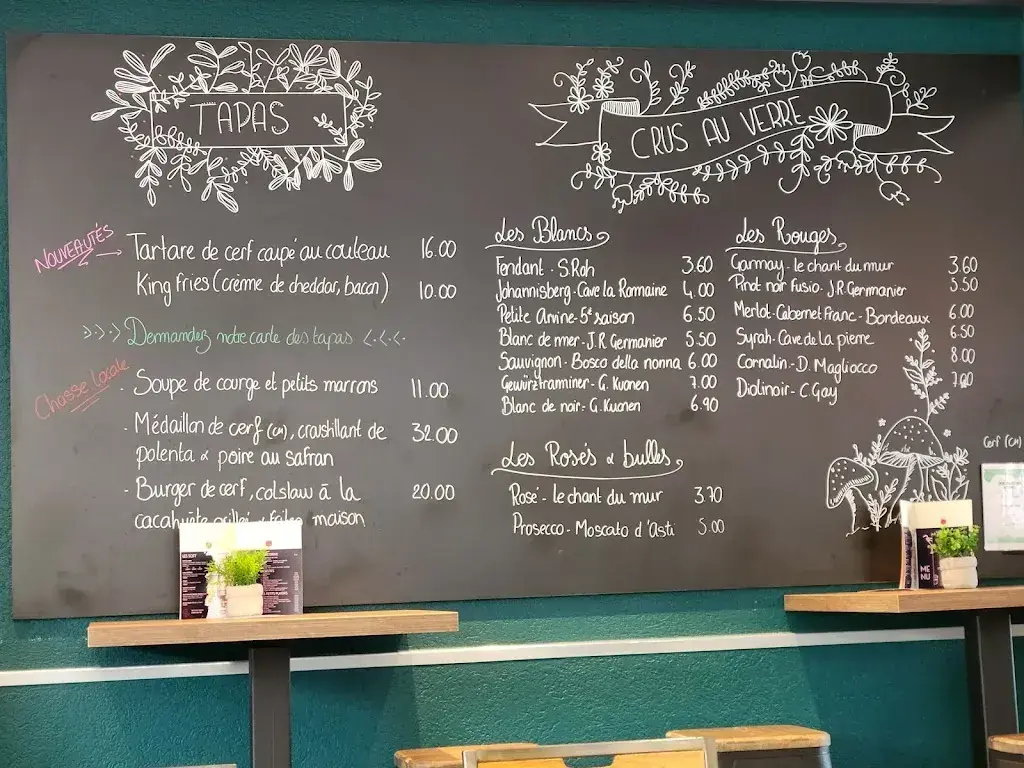 TAPAS
NOUVEAUTÉS
Tartare de cerf coupé au couteau 16.00
King fries (crème de cheddar, bacon) 10.00
>>>> Demandez notre carte des tapas <<<<
Chasse locale
- Soupe de courge et petits marrons 11.00
- Médaillon de cerf (CH), croustillant de 32.00
polenta & poire au safran
- Burger de cerf, colslaw à la 20.00
cacahuète maison
CRUS AU VERRE
Les Blancs
Fendant - S.Roh 3.60
Johannisberg - Cave la Romaine 4.00
Petite Arvine - 5e saison 6.50
Blanc de mer - J.R Germanier 5.50
Sauvignon - Bosco della nonna 6.00
Gewürztraminer - G. Kuonen 7.00
Blanc de noir - G. Kuonen 6.90
Les Rosés & bulles
Rosé - le chant du mur 3.70
Prosecco - Moscato d'Asti 5.00
Les Rouges
Gammay - le chant du mur 3.60
Pinot noir Fusio - J.R Germanier 5.50
Merlot - Cabernet Franc - Bordeaux 6.00
Syrah - Cave de la pierre 6.50
Cornalin - D. Magliocco 8.00
Diolinoir - C. Gay 7.00
Cerf (CH)
ME
NU